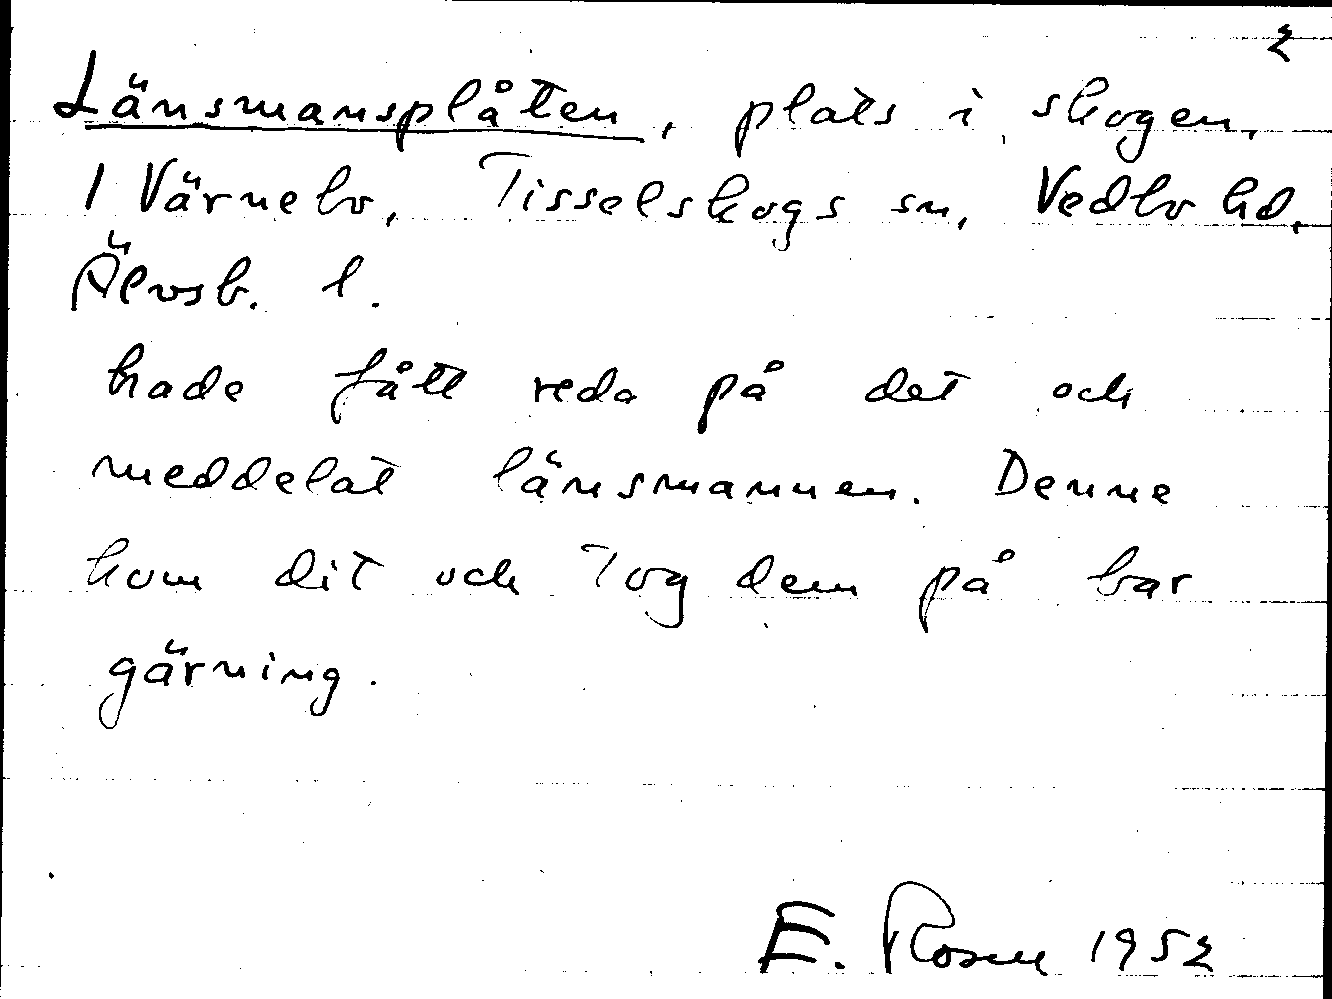 2
Länsmansplåten, plats i skogen,
1 Värnebo, Tisselskogs sn, Vedbo hd.
Älvsb. l.
hade fått reda på det och
meddelat länsmannen. Denne
kom dit och tog dem på bar
gärning.
E. Rosen 1952